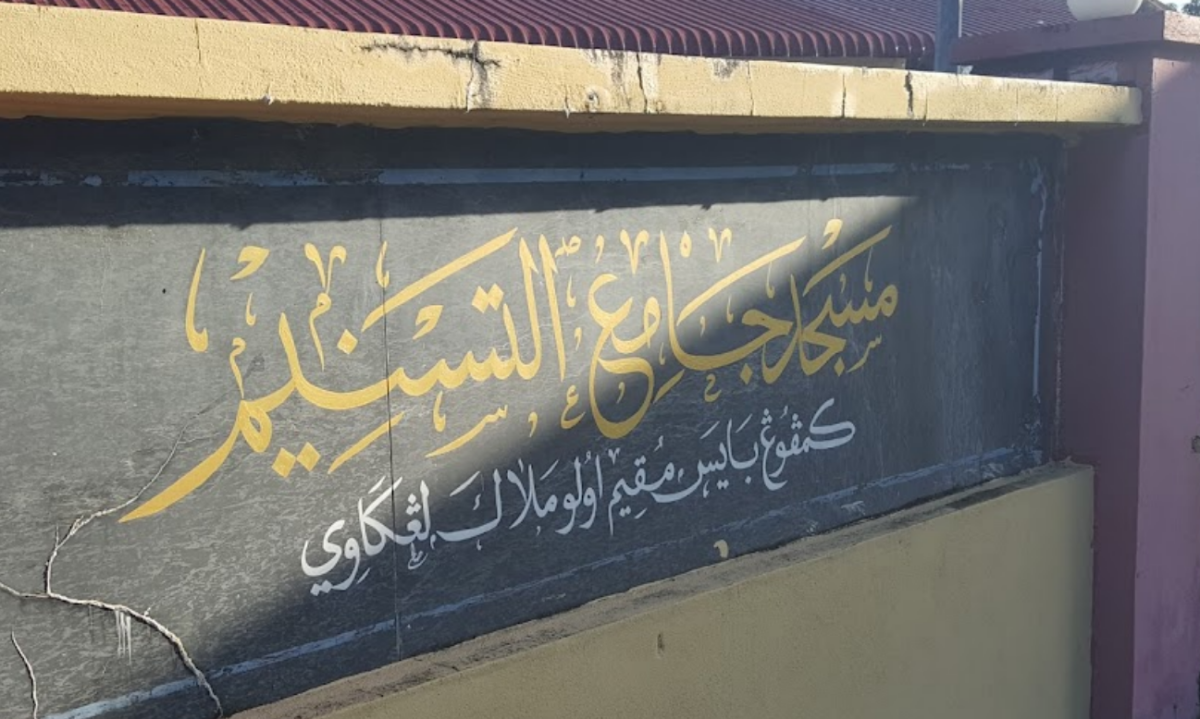 مسجد جامع التسنيم
كمڤوڠ بايس مقيم اولو ملاك لڠكاوي